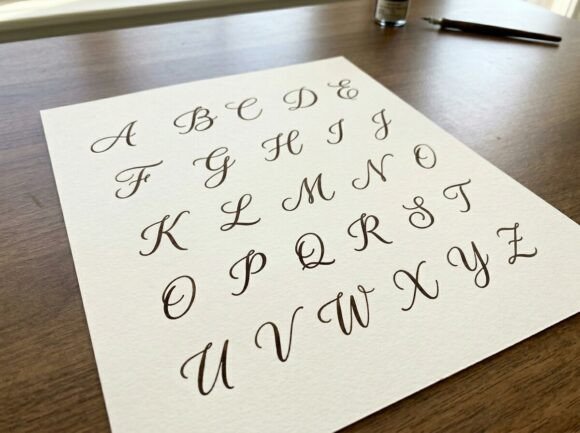 A B C D E
F G H I J
K L M N O
O P Q R S T
U V W X Y Z